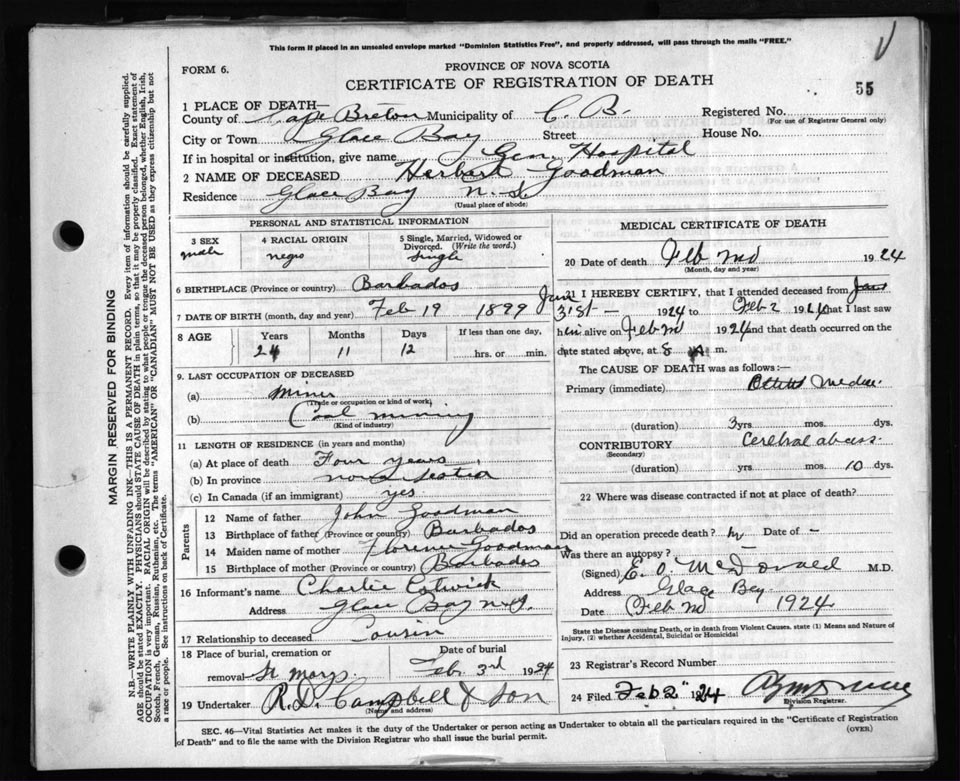 This form if placed in an unsealed envelope marked "Dominion Statistics Free", and properly addressed, will pass through the mails "FREE."
FORM 6.
PROVINCE OF NOVA SCOTIA
CERTIFICATE OF REGISTRATION OF DEATH
55
1 PLACE OF DEATH—
County of Cape Breton Municipality of C. B. Registered No.
(For use of Registrar General only)
City or Town Glace Bay Street House No.
If in hospital or institution, give name Gen. Hospital
2 NAME OF DECEASED Herbert Goodman
Residence Glace Bay N. S.
(Usual place of abode)
PERSONAL AND STATISTICAL INFORMATION
3 SEX 4 RACIAL ORIGIN 5 Single, Married, Widowed or Divorced. (Write the word.)
male negro Single
6 BIRTHPLACE (Province or country) Barbados
7 DATE OF BIRTH (month, day and year) Feb 19 1899
8 AGE Years Months Days If less than one day,
24 11 12 hrs. or min.
9. LAST OCCUPATION OF DECEASED
(a) Miner
(Trade or occupation or kind of work)
(b) Coal mining
(Kind of industry)
11 LENGTH OF RESIDENCE (in years and months)
(a) At place of death Four years
(b) In province nova scotia
(c) In Canada (if an immigrant) yes
Parents
12 Name of father John Goodman
13 Birthplace of father (Province or country) Barbados
14 Maiden name of mother Goodman
15 Birthplace of mother (Province or country) Barbados
16 Informant's name Charlie
Address Glace Bay N.S.
17 Relationship to deceased Cousin
18 Place of burial, cremation or removal St. Marys Date of burial Feb. 3rd 1924
19 Undertaker R. D. Campbell & Son
(Name and address)
MEDICAL CERTIFICATE OF DEATH
20 Date of death Feb 1924
(Month, day and year)
21 I HEREBY CERTIFY, that I attended deceased from Jan
31st — 1924 to Feb 2 1924 that I last saw
him alive on Feb 1924 and that death occurred on the
date stated above, at 8 A m.
The CAUSE OF DEATH was as follows:—
Primary (immediate) Otitis Media
(duration) 3 yrs. mos. dys.
CONTRIBUTORY Cerebral abcess
(Secondary)
(duration) yrs. mos. 10 dys.
22 Where was disease contracted if not at place of death?
Did an operation precede death? Date of —
Was there an autopsy?
(Signed) E. O. McDonald M.D.
Address Glace Bay
Date Feb 1924
State the Disease causing Death, or in death from Violent Causes, state (1) Means and Nature of Injury, (2) whether Accidental, Suicidal or Homicidal
23 Registrar's Record Number
24 Filed Feb 2" 24
Division Registrar.
SEC. 46—Vital Statistics Act makes it the duty of the Undertaker or person acting as Undertaker to obtain all the particulars required in the "Certificate of Registration
of Death" and to file the same with the Division Registrar who shall issue the burial permit.
(OVER)
MARGIN RESERVED FOR BINDING
N.B.—WRITE PLAINLY, WITH UNFADING INK—THIS IS A PERMANENT RECORD. Every item of information should be carefully supplied.
AGE should be stated EXACTLY. PHYSICIANS should STATE CAUSE OF DEATH in plain terms, so that it may be properly classified. Exact statement of
OCCUPATION is very important. RACIAL ORIGIN will be described by stating to what people or tongue the deceased person belonged, whether English, Irish,
Scotch, French, German, Russian, Ruthenian, etc. The terms "AMERICAN" or "CANADIAN" MUST NOT BE USED as they express citizenship but not
a race or people. See instructions on back of Certificate.